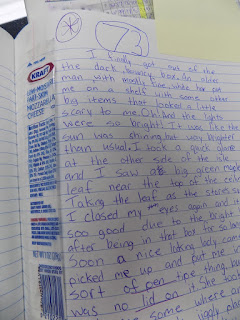 73
KRAFT
LOW-MOISTURE
PART-SKIM
MOZZARELLA
CHEESE
I finally got out of the
the dark icy box. An older
man with mostly fine white hair put
me on a shelf with some other
big items that looked a little
scary to me. Oh! And the lights
were so bright! It was like the
sun was shining but way brighter
than usual. I took a quick glance
at the other side of the isle
and I saw a big green maple
leaf near the top of the
Taking the leaf as the stores
I closed my eyes again and it
soo good due to the bright
after being in that box for so long
Soon a nice loking lady came
picked me up and put me
sort of thing bu
was no lid on it. She took
some where